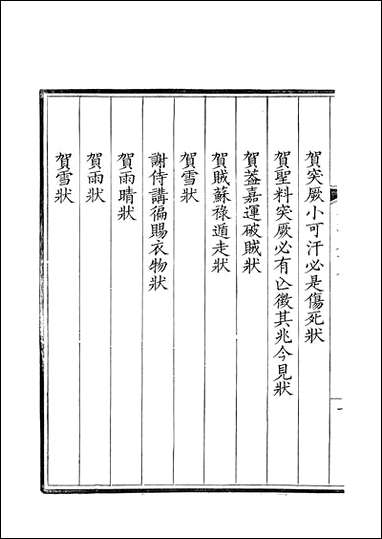 賀突厥小可汗必是傷死狀
賀聖料突厥必有亡徵其兆今見狀
賀葢嘉運破賊狀
賀賊蘇祿遁走狀
賀雪狀
謝侍講徧賜衣物狀
賀雨晴狀
賀雨狀
賀雪狀